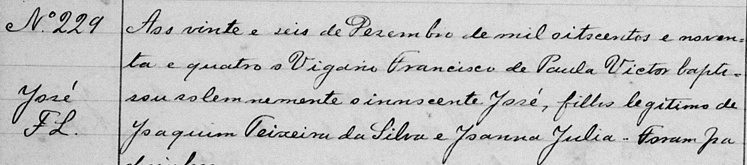 Nº 229
Aos vinte e seis de Dezembro de mil oitscentos e noven=
ta e quatro o Vigario Francisco de Paula Victor bapti-
José
sou solemnemente o innocente José, filho legitimo de
F L.
Joaquim Teixeira da Silva e Joanna Julia - Foram pa